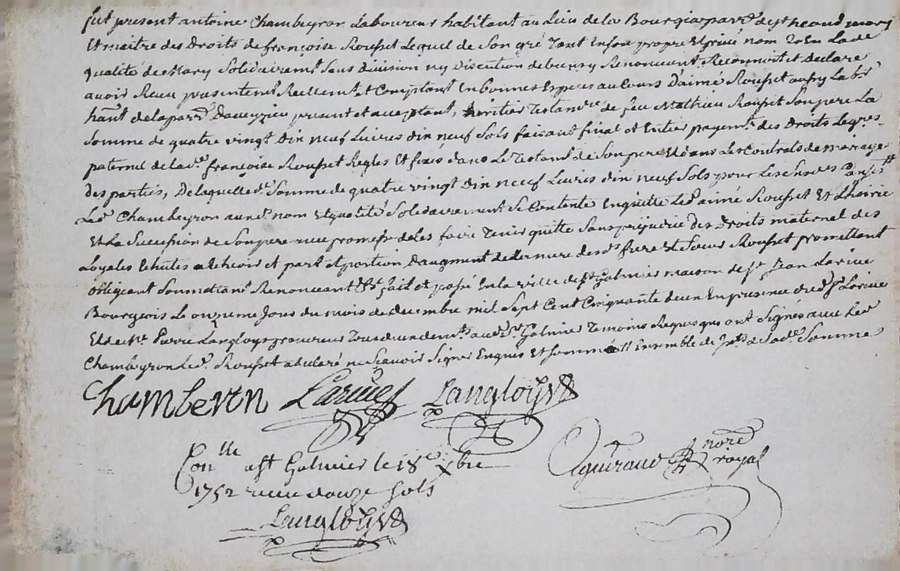 fut present antoine Chambeyron Laboureur habitant au Lieu de la Bourgia parr.
Et maitre des Droits de françoise Rouset Lequel de Son gré Tant En son propre Et privé nom qu En La de
qualité de Mary Solidairemt. Sans division ny discution de biens y Renonceant Reconnoit et declare
avoir Receu presentement Reellemt. et Comptant En bonnes Especes au Cours D'aimé Rouset aussy Labr.
hant. de la parr. present et acceptant, heritier Testamre. de feu Mathieu Rouset Son pere La
Somme de quatre vingt Dix neuf Livres dix neuf Sols faisant final et Entier payemt. des Droits Legres
paternel de lad. françoise Rouset Reglés Et fixés dans Le Testamt. de Son pere Et dans Les Contrats de mariage
des parties, De laquelle d. Somme de quatre vingt dix neuf Livres dix neuf Sols pour Les
Led. Chambeyron aux d. nom Et qualité Solidairement Se Contente En quitte Led. aimé Rouset Et L'hoirie
Et La Succession de Son pere avec promesse de Les faire Tenir quitte Sans prejudice des Droits maternel des
Loyales Echutes a Echeoir et part et portion D'augment de derniere des d. frere Et Soeur Rouset promettant
obligeant Soumettant Renonceant Et fait et passé En la ville de St. Galmier maison de Sr. Jean Larive
Bourgeois Le onzieme Jour du mois de decembre mil Sept Cent Cinquante deux En presence dud. Sr. Larive
Et de Sr. Pierre Langloys procureur Tous deux demt. aud. St. Galmier Temoins Requis qui ont Signés avec Led.
Chambeyron Led. Rouset a declaré ne Scavoir Signer Enquis Et Sommé Ensemble de Lad. Somme
Chambeyron Larive Langloys
Con.lle a St Galmier le 18e Xbre
1752 receu douze Sols
Langloys
Agniraud nore. royal